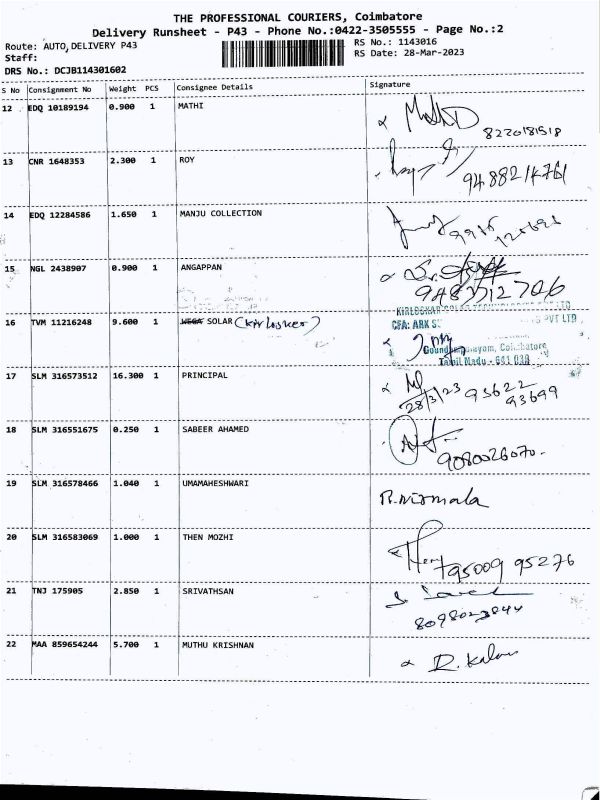 THE PROFESSIONAL COURIERS, Coimbatore
Delivery Runsheet - P43 - Phone No.:0422-3505555 - Page No.:2
Route: AUTO,DELIVERY P43
RS No.: 1143016
Staff:
RS Date: 28-Mar-2023
DRS No.: DCJB114301602
S No Consignment No Weight PCS Consignee Details Signature
12 EDQ 10189194 0.900 1 MATHI
8220181518
13 CNR 1648353 2.300 1 ROY
9488214761
14 EDQ 12284586 1.650 1 MANJU COLLECTION
15 NGL 2438907 0.900 1 ANGAPPAN
16 TVM 11216248 9.600 1 WEGA SOLAR (Kirlosker)
CFA: ARK PVT LTD
Coimbatore
Tamil Nadu - 641 030
17 SLM 316573512 16.300 1 PRINCIPAL
28/3/23 93622
93699
18 SLM 316551675 0.250 1 SABEER AHAMED
9080026070.
19 SLM 316578466 1.040 1 UMAMAHESHWARI
R.Nirmala
20 SLM 316583069 1.000 1 THEN MOZHI
95009 95276
21 TNJ 175905 2.850 1 SRIVATHSAN
22 MAA 859654244 5.700 1 MUTHU KRISHNAN